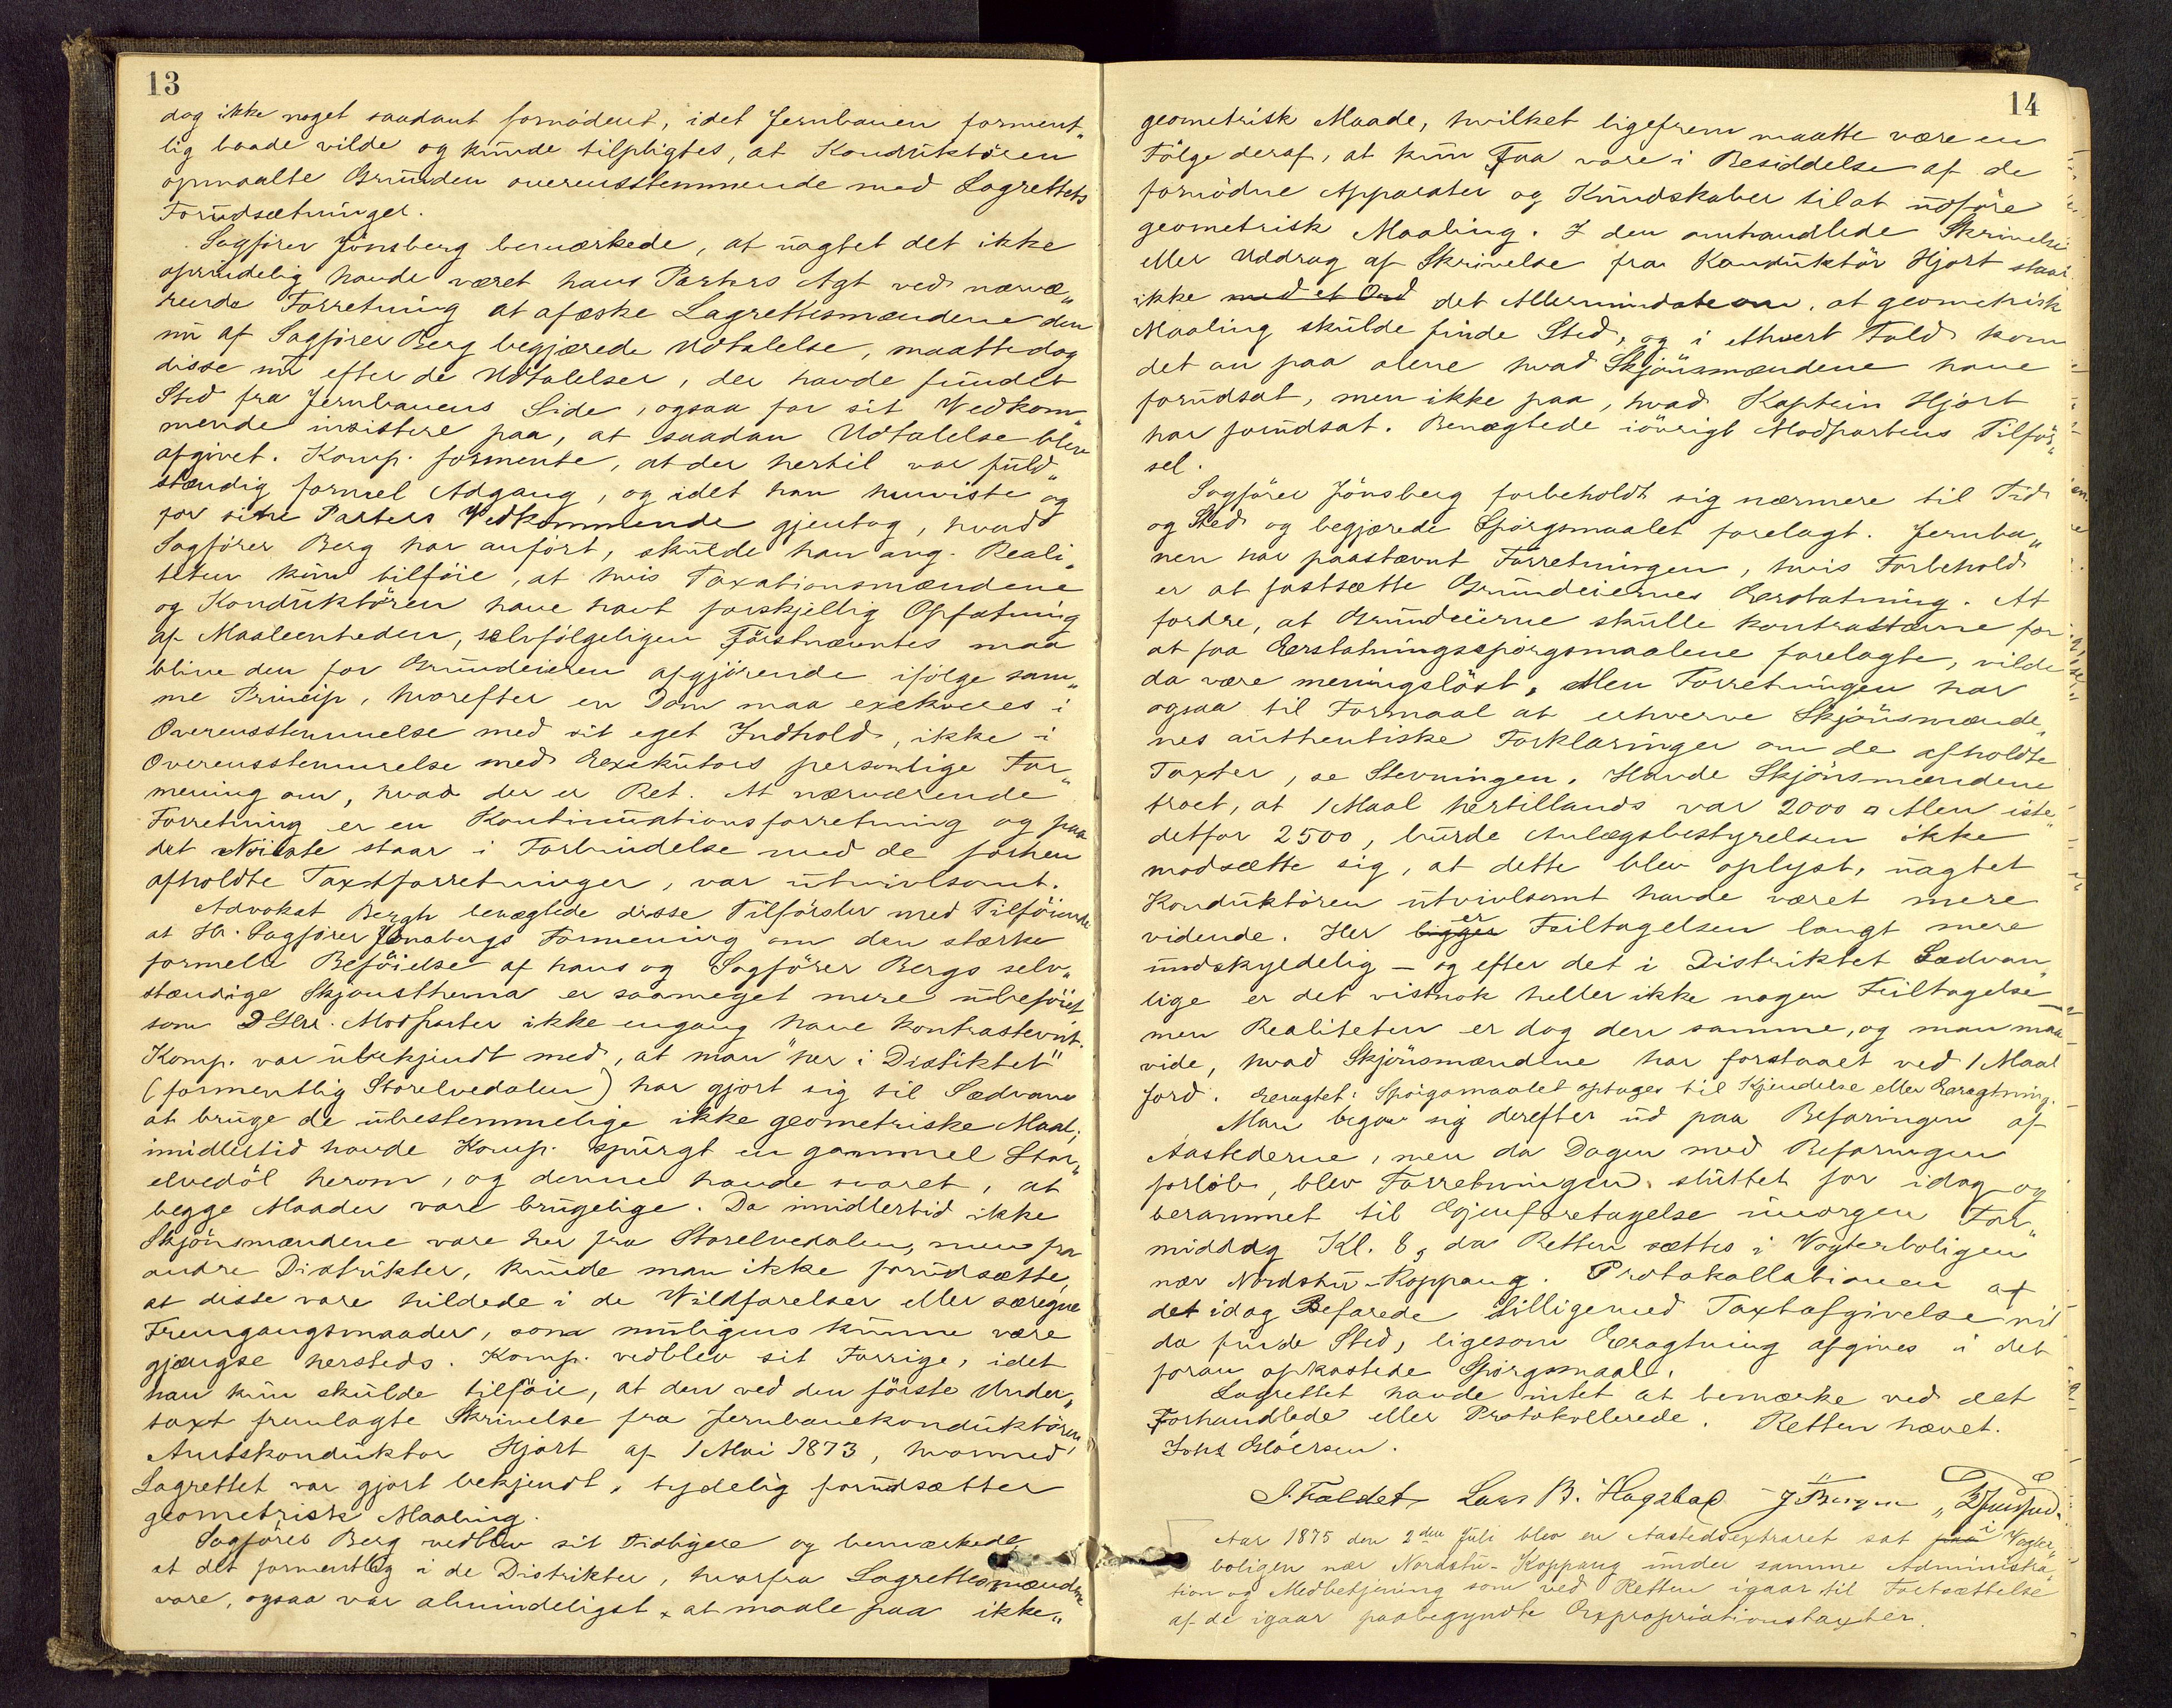 13
dog ikke noget saadant fornödent, idet Jernbanen forment„
lig baade vilde og kunde tilpligtes, at Konduktören
opmaalte Grunden overensstemmende med Lagrettets
Forudsætninger.
Sagfører Jönsberg bemærkede, at uagtet det ikke
oprindelig havde været hans Parters Agt ved nærvæ„
rende Forretning at afæske Lagrettesmændene den
nu af Sagfører Berg begjærede Udtalelse, maatte dog
disse nu efter de Udtalelser, der havde fundet
Sted fra Jernbanens Side, ogsaa for sit Vedkom„
mende insistere paa, at saadan Udtalelse blev
afgivet. Komp. formente, at der hertil var fuld„
stændig formel Adgang, og idet han henviste og
for sine Parters Vedkommende gjentog, hvad
Sagförer Berg har anfört, skulde han ang. Reali„
teten kun tilföie, at hvis Taxationsmændene
og Konduktören have havt forskjellig Opfatning
af Maaleenheden, selvfölgeligen Förstnævntes maa
blive den for Grundeieren afgjörende ifölge sam„
me Princip, hvorefter en Dom maa exekveres i
Overensstemmelse med sit eget Indhold, ikke i
Overensstemmelse med Exekutors personlige For„
mening om, hvad der er Ret. At nærværende
Forretning er en Kontinuationsforretning og paa
det Nöieste staar i Forbindelse med de forhen
afholdte Taxtforretninger, var utvivlsomt.
Advokat Bergh benægtede disse Tilförsler med Tilföiende
at Hr. Sagfører Jönsbergs Formening om den stærke
formelle Beföielse af hans og Sagförer Bergs selv„
stændige Skjønsthema er saameget mere ubeföiet
som DHrr. Modparter ikke engang have kontrastevnt.
Komp. var ubekjendt med, at man "her i Distiktet"
(formentlig Storelvedalen) har gjort sig til Sædvane
at bruge de ubestemmelige ikke geometriske Maal;
imidlertid havde Komp. spurgt en gammel Stor„
elvedöl herom, og denne havde svaret, at
begge Maader vare brugelige. Da imidlertid ikke
Skjönsmændene vare her fra Storelvedalen, men fra
andre Distrikter, kunde man ikke forudsætte,
at disse vare hildede i de Vildfarelser eller særegne
Fremgangsmaader, som muligens kunne være
gjængse hersteds. Komp. vedblev sit Forrige, idet
han kun skulde tilföie, at den ved den förste Under„
taxt fremlagte Skrivelse fra Jernbanekonduktören,
Amtskonduktør Hjort af 1 Mai 1873, hvormed
Lagrettet var gjort bekjendt, tydelig forudsætter
geometrisk Maaling.
Sagförer Berg vedblev sit Tidligere og bemærkede
at det formentlig i de Distrikter, hvorfra Lagrettesmændene
vare, ogsaa var almindeligst at maale paa ikke„
14
geometrisk Maade, hvilket ligefrem maatte være en
Fölge deraf, at kun Faa vare i Besiddelse af de
fornödne Apparater og Kundskaber til at udföre
geometrisk Maaling. I den omhandlede Skrivelse
eller Uddrag af Skrivelse fra Konduktör Hjort staar
ikke med et Ord det Allermindste om, at geometrisk
Maaling skulde finde Sted, og i ethvert Fald kom
det an paa alene hvad Skjönsmændene have
forudsat, men ikke paa, hvad Kaptein Hjort
har forudsat. Benægtede iövrigt Modpartens Tilför„
sel.
Sagförer Jönsberg forbeholdt sig nærmere til Tid
og Sted og begjærede Spörgsmaalet forelagt. Jernba„
nen har paastævnt Forretningen, hvis Forbehold
er at fastsætte Grundeiernes Erstatning. At
fordre, at Grundeierne skulle kontrastævne for
at faa Erstatningsspörgsmaalene forelagte, vilde
da være meningslöst. Men Forretningen har
ogsaa til Formaal at erhverve Skjönsmænde„
nes authentiske Forklaringer om de afholdte
Taxter, se Stevningen. Havde Skjönsmændene
troet, at 1 Maal hertillands var 2000 □ Alen iste„
detfor 2500, burde Anlægsbestyrelsen ikke
modsætte sig, at dette blev oplyst, uagtet
Konduktören utvivlsomt havde været mere
vidende. Her ligger er Feiltagelsen langt mere
undskyldelig – og efter det i Distriktet Sædvan„
lige er det vistnok heller ikke nogen Feiltagelse –
men Realiteten er dog den samme, og man maa
vide, hvad Skjönsmændene har forstaaet ved 1 Maal
Jord. Eragtet: Spörgsmaalet optages til Kjendelse eller Eragtning.
Man begav sig derefter ud paa Befaringen af
Aastederne, men da Dagen med Befaringen
forlöb, blev Forretningen sluttet for idag og
berammet til Gjenforetagelse imorgen For„
middag Kl. 8, da Retten sættes i Vogterboligen
nær Nordstu-Koppang. Protokollationen af
det idag Befarede tilligemed Taxtafgivelse vil
da finde Sted, ligesom Eragtning afgives i det
foran opkastede Spörgsmaal.
Lagrettet havde intet at bemærke ved det
Forhandlede eller Protokollerede. Retten hævet.
Johs Glöersen.
S. Faldet Lars B. Hagstad J. Bergh
Aar 1875 den 2den Juli blev en Aastedsextraret sat paa i Vogter„
boligen nær Nordstu-Koppang under samme Administra„
tion og Medbetjening som ved Retten igaar til Fortsættelse
af de igaar paabegyndte Expropriationstaxter.